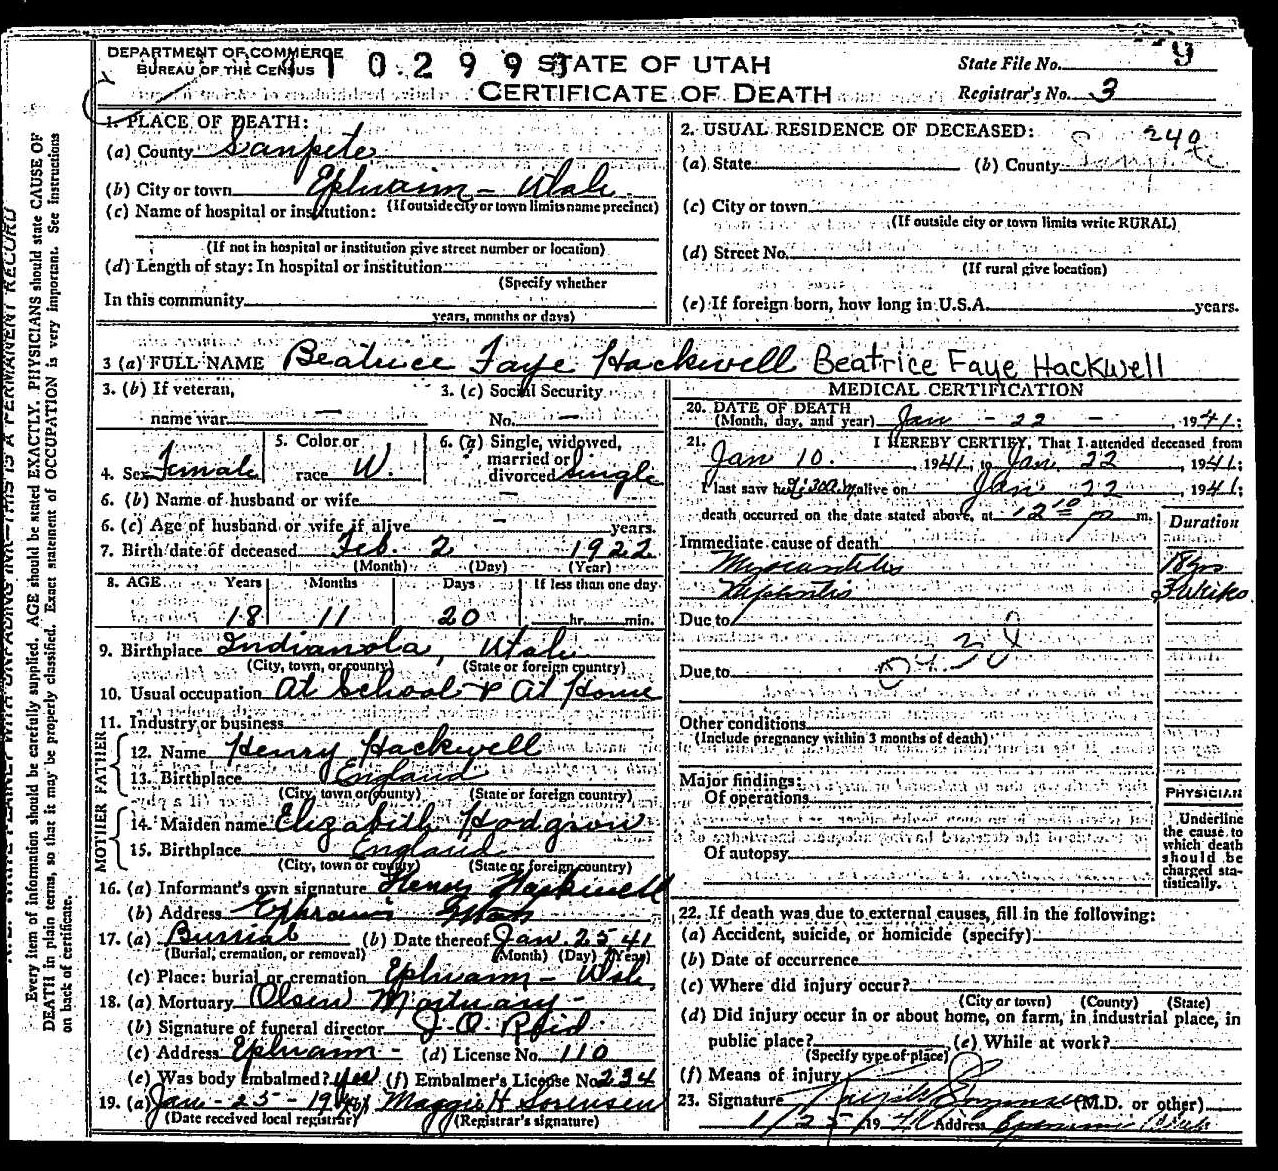 DEPARTMENT OF COMMERCE
BUREAU OF THE CENSUS
STATE OF UTAH
CERTIFICATE OF DEATH
State File No. 9
Registrar's No. 3
1. PLACE OF DEATH:
(a) County Sanpete
(b) City or town Ephraim - Utah
(If outside city or town limits name precinct)
(c) Name of hospital or institution:
(If not in hospital or institution give street number or location)
(d) Length of stay: In hospital or institution
(Specify whether
In this community
years, months or days)
2. USUAL RESIDENCE OF DECEASED: 240
(a) State (b) County Sanpete
(c) City or town
(If outside city or town limits write RURAL)
(d) Street No.
(If rural give location)
(e) If foreign born, how long in U.S.A. years.
3 (a) FULL NAME Beatrice Faye Hackwell Beatrice Faye Hackwell
3. (b) If veteran,
name war —
3. (c) Social Security
No. —
4. Sex Female
5. Color or
race W.
6. (a) Single, widowed,
married or
divorced Single
6. (b) Name of husband or wife —
6. (c) Age of husband or wife if alive - years.
7. Birth date of deceased Feb. 2 1922
(Month) (Day) (Year)
8. AGE Years Months Days If less than one day
18 11 20 hr. min.
9. Birthplace Indianola, Utah
(City, town, or county) (State or foreign country)
10. Usual occupation At School & At Home
11. Industry or business
FATHER
12. Name Henry Hackwell
13. Birthplace England
(City, town or county) (State or foreign country)
MOTHER
14. Maiden name Elizabeth Hodgson
15. Birthplace England
(City, town or county) (State or foreign country)
16. (a) Informant's own signature Henry Hackwell
(b) Address Ephraim Utah
17. (a) Burrial (b) Date thereof Jan. 25 41
(Burial, cremation, or removal) (Month) (Day) (Year)
(c) Place: burial or cremation Ephraim - Utah
18. (a) Mortuary Olsen Mortuary -
(b) Signature of funeral director J. O. Reid
(c) Address Ephraim - (d) License No. 110
(e) Was body embalmed? yes (f) Embalmer's License No. 234
19. (a) Jan - 25 - 1941 Maggie H Sorensen
(Date received local registrar) (Registrar's signature)
MEDICAL CERTIFICATION
20. DATE OF DEATH
(Month, day, and year) Jan - 22 - , 1941;
21. I HEREBY CERTIFY, That I attended deceased from
Jan 10. , 1941, to Jan 22 , 1941;
I last saw her alive on Jan 22 , 1941;
death occurred on the date stated above, at 12 10 p m.
Duration
Immediate cause of death
Myocarditis 18 yrs
Nephritis 3 wks
Due to
Due to
Other conditions
(Include pregnancy within 3 months of death)
Major findings:
Of operations
Of autopsy
PHYSICIAN
Underline
the cause to
which death
should be
charged sta-
tistically.
22. If death was due to external causes, fill in the following:
(a) Accident, suicide, or homicide (specify)
(b) Date of occurrence
(c) Where did injury occur?
(City or town) (County) (State)
(d) Did injury occur in or about home, on farm, in industrial place, in
public place? (e) While at work?
(Specify type of place)
(f) Means of injury
23. Signature (M.D. or other)
1/25/1941 Address Ephraim Utah
Every item of information should be carefully supplied. AGE should be stated EXACTLY. PHYSICIANS should state CAUSE OF
DEATH in plain terms, so that it may be properly classified. Exact statement of OCCUPATION is very important. See instructions
on back of certificate.